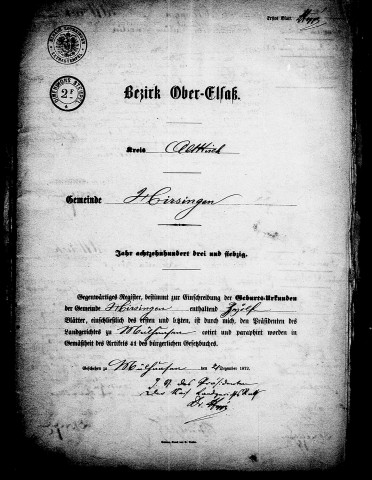 Erstes Blatt.
2 F
Bezirk Ober-Elsaß.
Kreis Altkirch
Gemeinde Hirsingen
Jahr achtzehnhundert drei und siebzig.
Gegenwärtiges Register, bestimmt zur Einschreibung der Geburts-Urkunden
der Gemeinde Hirsingen enthaltend Zwölf
Blätter, einschließlich des ersten und letzten, ist durch mich, den Präsidenten des
Landgerichtes zu Mülhausen cotirt und paraphirt worden in
Gemäßheit des Artikels 41 des bürgerlichen Gesetzbuches.
Geschehen zu Mülhausen den Dezember 1872.
des Präsidenten
des Landgerichts
Dr.